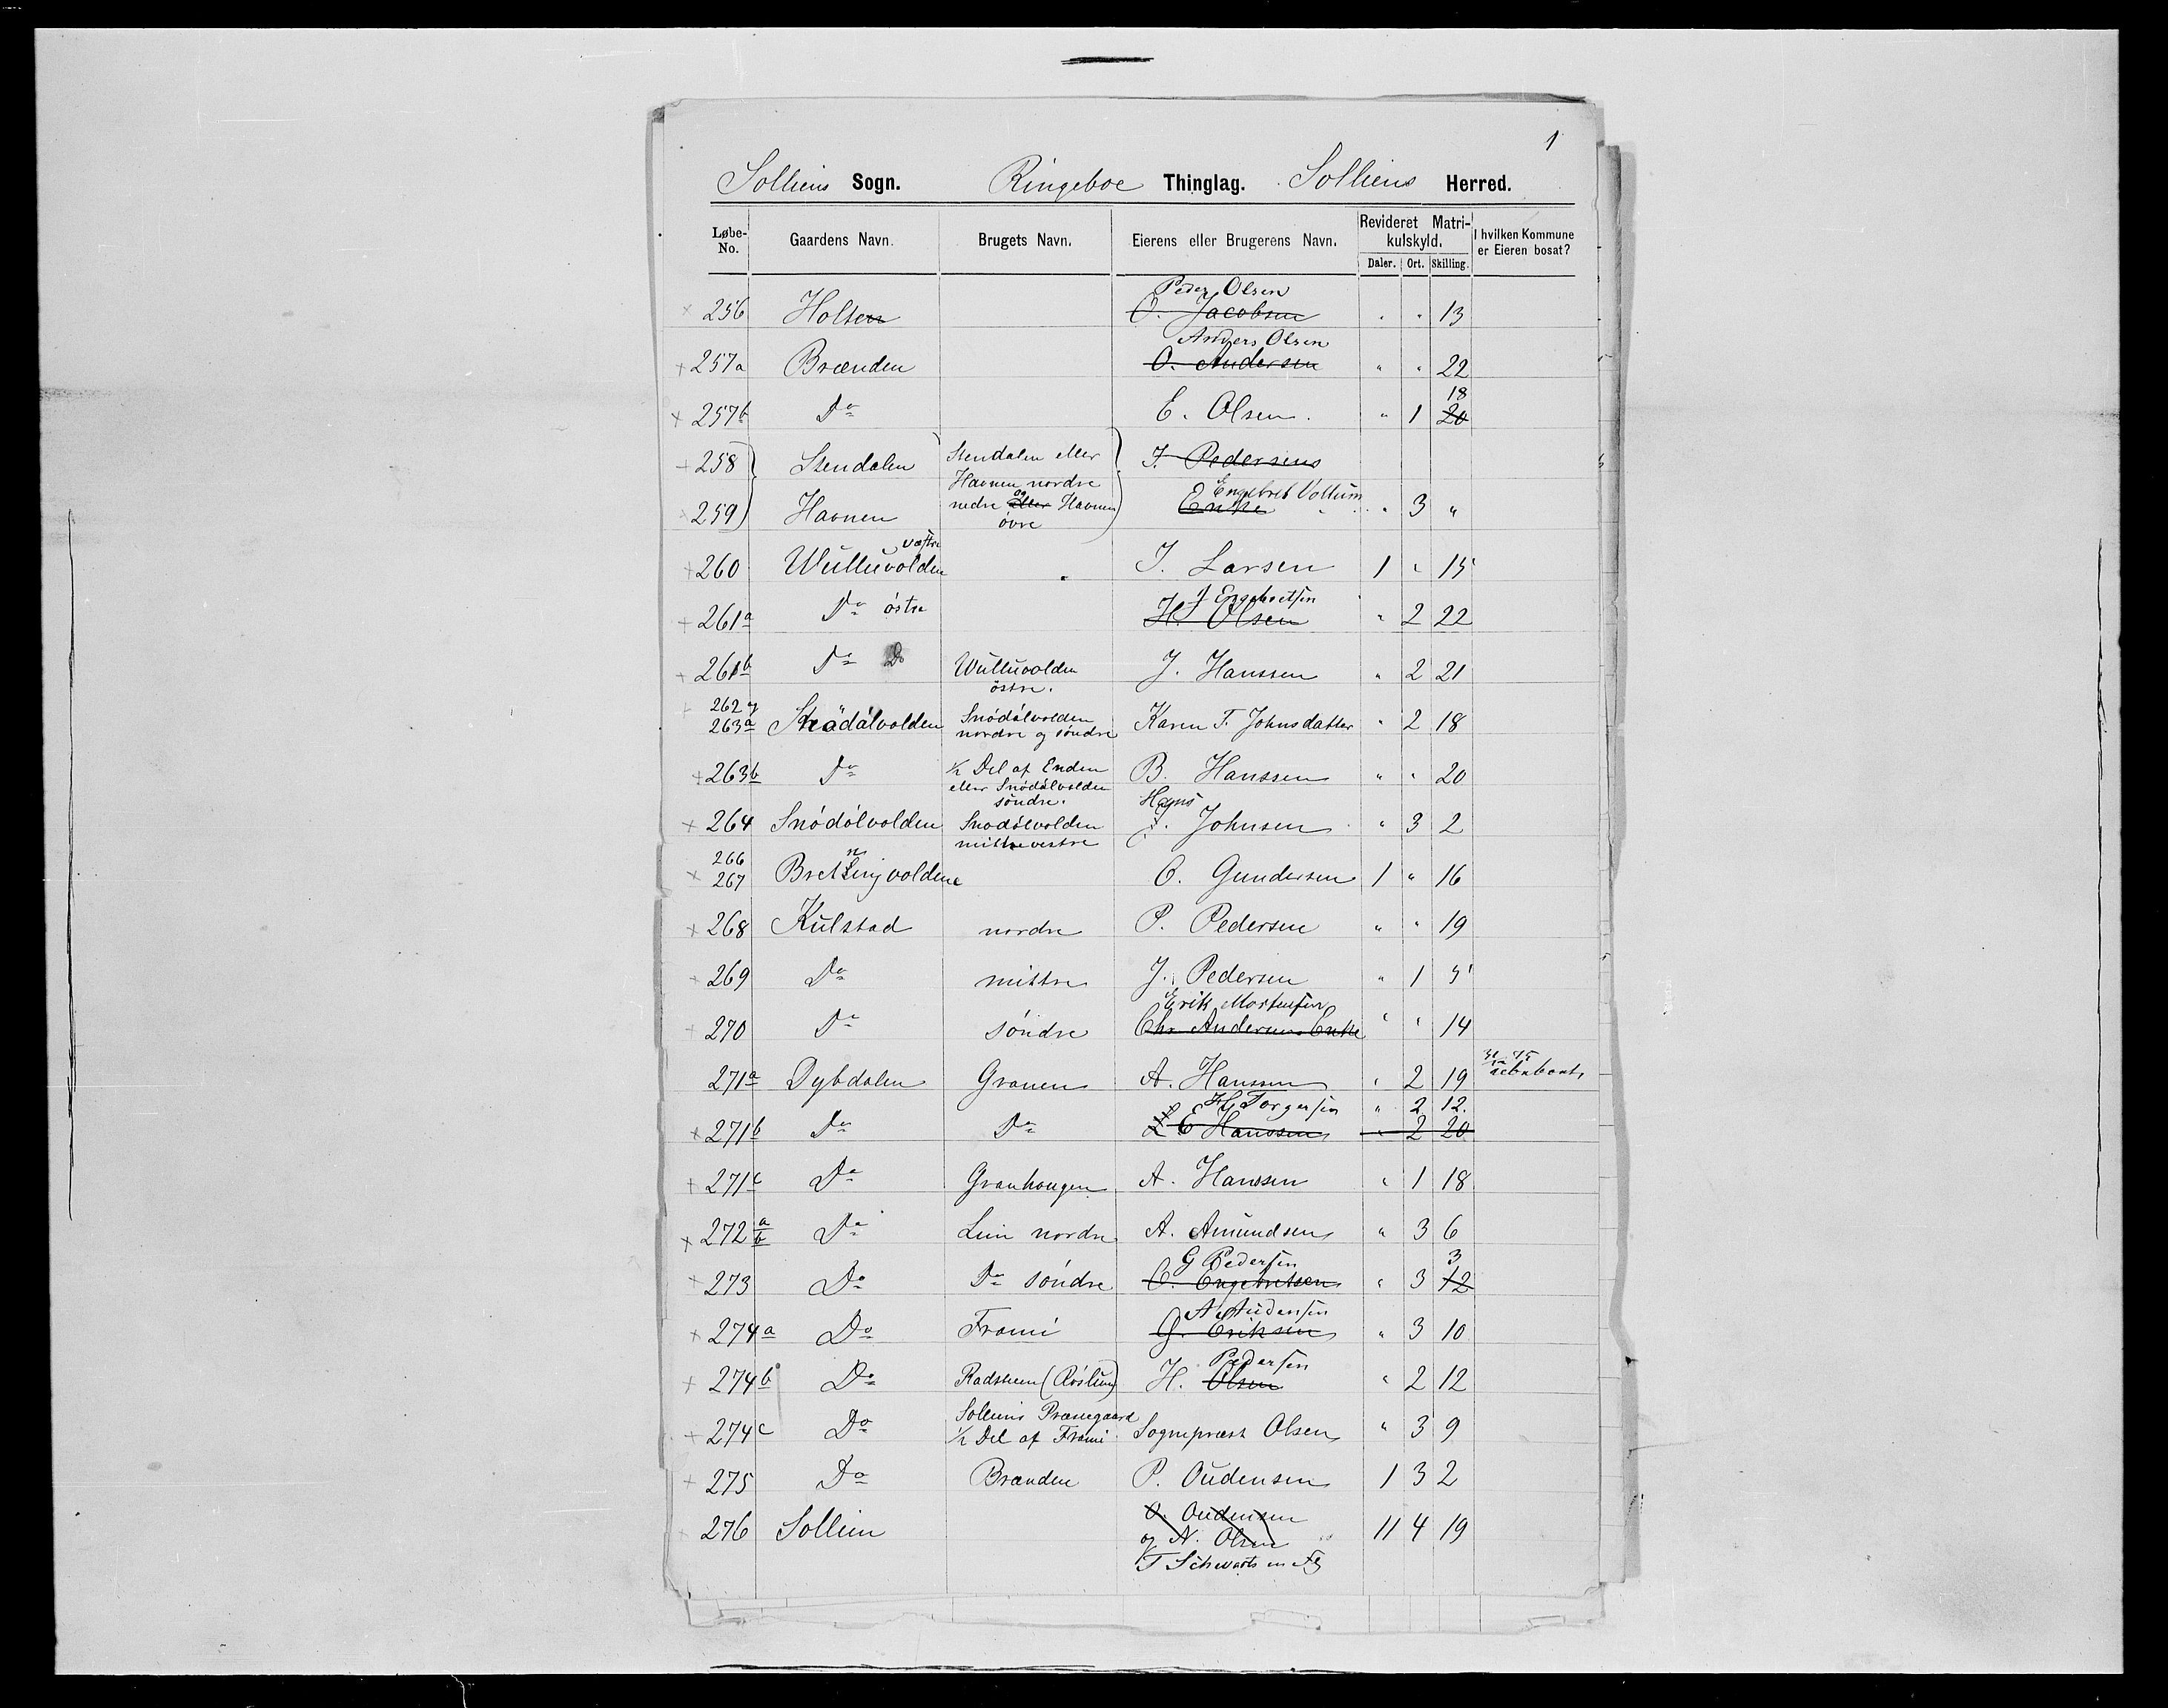 1
Solliens Sogn. Ringeboe Thinglag. Solliens Herred.
Løbe-No. Gaardens Navn. Brugets Navn. Eierens eller Brugerens Navn. Revideret Matrikulskyld. I hvilken Kommune er Eieren bosat?
Daler. Ort. Skilling.
Peder Olsen
256 Holten O. Jacobsen " " 13
Anders Olsen
257a Brænden O. Andersen " " 22
18
257b Do E. Olsen. " 1 20
258 Stendalen Stendalen eller J. Pedersens
Havnen nordre Engebret Vollum
259 Havnen nedre eller og Havnen Enke " 3 "
øvre
væstre
260 Wulluvolden J. Larsen 1 " 15
J Engebretsen
261a Do østre H. Olsen " 2 22
261b Do Do Wulluvolden J. Hanssen " 2 21
østre.
262 og Snödölvolden
263a Snödölvolden nordre og søndre Karen T. Johnsdatter " 2 18
263b Do ½ Del af Enden B. Hanssen " " 20
eller Snödölvolden
søndre. Hans
264 Snödölvolden Snodölvolden J. Johnsen " 3 2
mittre vestre
266
267 Bretningvoldene O. Gundersen 1 " 16
268 Kulstad nordre P. Pedersen " " 19
269 Do mittre J. Pedersen " 1 5
Erik Mortensen
270 Do søndre Chr Andersens Enke " " 14
271a Dybdalen Granen A. Hanssen " 2 19
H G Torgersen " 2 12.
271b Do Do E Hanssen " 2 20
271c Do Granhaugen A. Hanssen " 1 18
272 a b Do Lien nordre A. Amundsen " 3 6
G Pedersen 3
273 Do Do søndre O. Engebretsen " 3 12
A Audensen
274a Do Frami G. Eriksen " 3 10
Pedersen
274b Do Radstuen (Röslien) H. Olsen " 2 12
Solliens Præstegaard
274c Do ½ Del af Frami Sogneprest Olsen " 3 9
275 Do Brænden P. Oudensen 1 3 2
O. Oudensen
276 Sollien og N. Olsen 11 4 19
T Schwarts en Flg